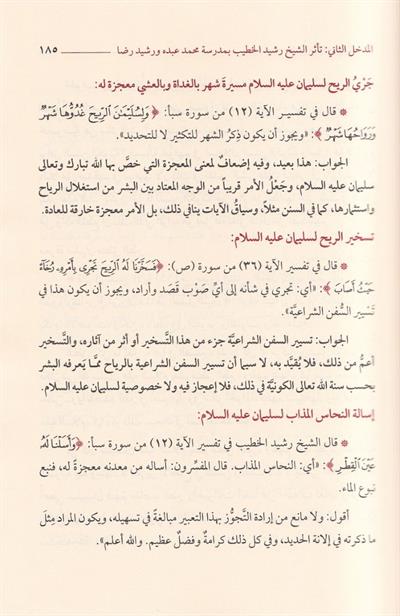 المدخل الثاني: تأثر الشيخ رشيد الخطيب بمدرسة محمد عبده ورشيد رضا ١٨٥
جَرْيُ الريح لسليمان عليه السلام مسيرةَ شهر بالغداة وبالعشي معجزة له:
* قال في تفسير الآية (١٢) من سورة سبأ: ﴿وَلِسُلَيْمَٰنَ ٱلرِّيحَ غُدُوُّهَا شَهْرٌ
وَرَوَاحُهَا شَهْرٌ﴾: «ويجوز أن يكون ذِكرُ الشهر للتكثير لا للتحديد».
الجواب: هذا بعيد، وفيه إضعافٌ لمعنى المعجزة التي خصَّ بها الله تبارك وتعالى
سليمان عليه السلام، وجَعْلُ الأمر قريباً من الوجه المعتاد بين البشر من استغلال الرياح
واستثمارها، كما في السنن مثلاً، وسياقُ الآيات ينافي ذلك، بل الأمر معجزة خارقة للعادة.
تسخير الريح لسليمان عليه السلام:
* قال في تفسير الآية (٣٦) من سورة (ص): ﴿فَسَخَّرْنَا لَهُ ٱلرِّيحَ تَجْرِى بِأَمْرِهِۦ رُخَآءً
حَيْثُ أَصَابَ﴾: «أي: تجري في شأنه إلى أيِّ صَوْبٍ قَصَد وأراد، ويجوز أن يكون هذا في
تَسْيير السُّفن الشراعيَّة».
الجواب: تسيير السفن الشراعيَّة جزء من هذا التَّسخير أو أثر من آثاره، والتَّسخير
أعمُّ من ذلك، فلا يُقيَّد به، لا سيما أن تسيير السفن الشراعية بالرياح ممَّا يَعرفه البشر
بحسب سنة الله تعالى الكونيَّة في ذلك، فلا إعجاز فيه ولا خصوصية لسليمان عليه السلام.
إسالة النحاس المذاب لسليمان عليه السلام:
* قال الشيخ رشيد الخطيب في تفسير الآية (١٢) من سورة سبأ: ﴿وَأَسَلْنَا لَهُۥ
عَيْنَ ٱلْقِطْرِ﴾: «أي: النحاس المذاب. قال المفسِّرون: أساله من معدنه معجزةً له، فنبع
نبوع الماء.
أقول: ولا مانع من إرادة التَّجوُّز بهذا التعبير مبالغةً في تسهيله، ويكون المراد مِثلَ
ما ذكرته في إلانة الحديد، وفي كل ذلك كرامةٌ وفضلٌ عظيم. والله أعلم».